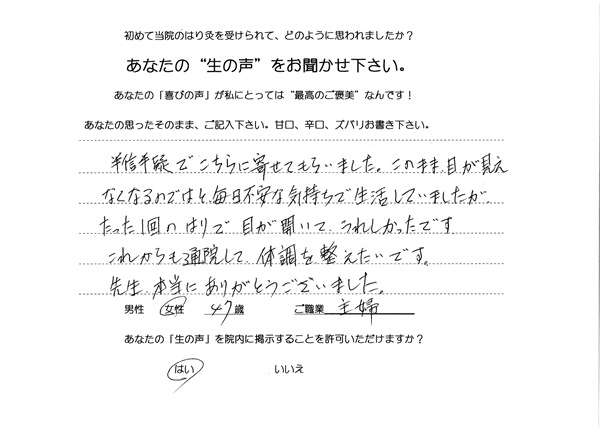 初めて当院のはり灸を受けられて、どのように思われましたか？
あなたの“生の声”をお聞かせ下さい。
あなたの「喜びの声」が私にとっては“最高のご褒美”なんです！
あなたの思ったそのまま、ご記入下さい。甘口、辛口、ズバリお書き下さい。
半信半疑でこちらに寄せてもらいました。このまま目が見え
なくなるのではと、毎日不安な気持ちで生活していましたが、
たった1回のはりで目が開いて、うれしかったです
これからも通院して、体調を整えたいです。
先生、本当にありがとうございました。
男性 女性 47歳 ご職業 主婦
あなたの「生の声」を院内に掲示することを許可いただけますか？
はい いいえ